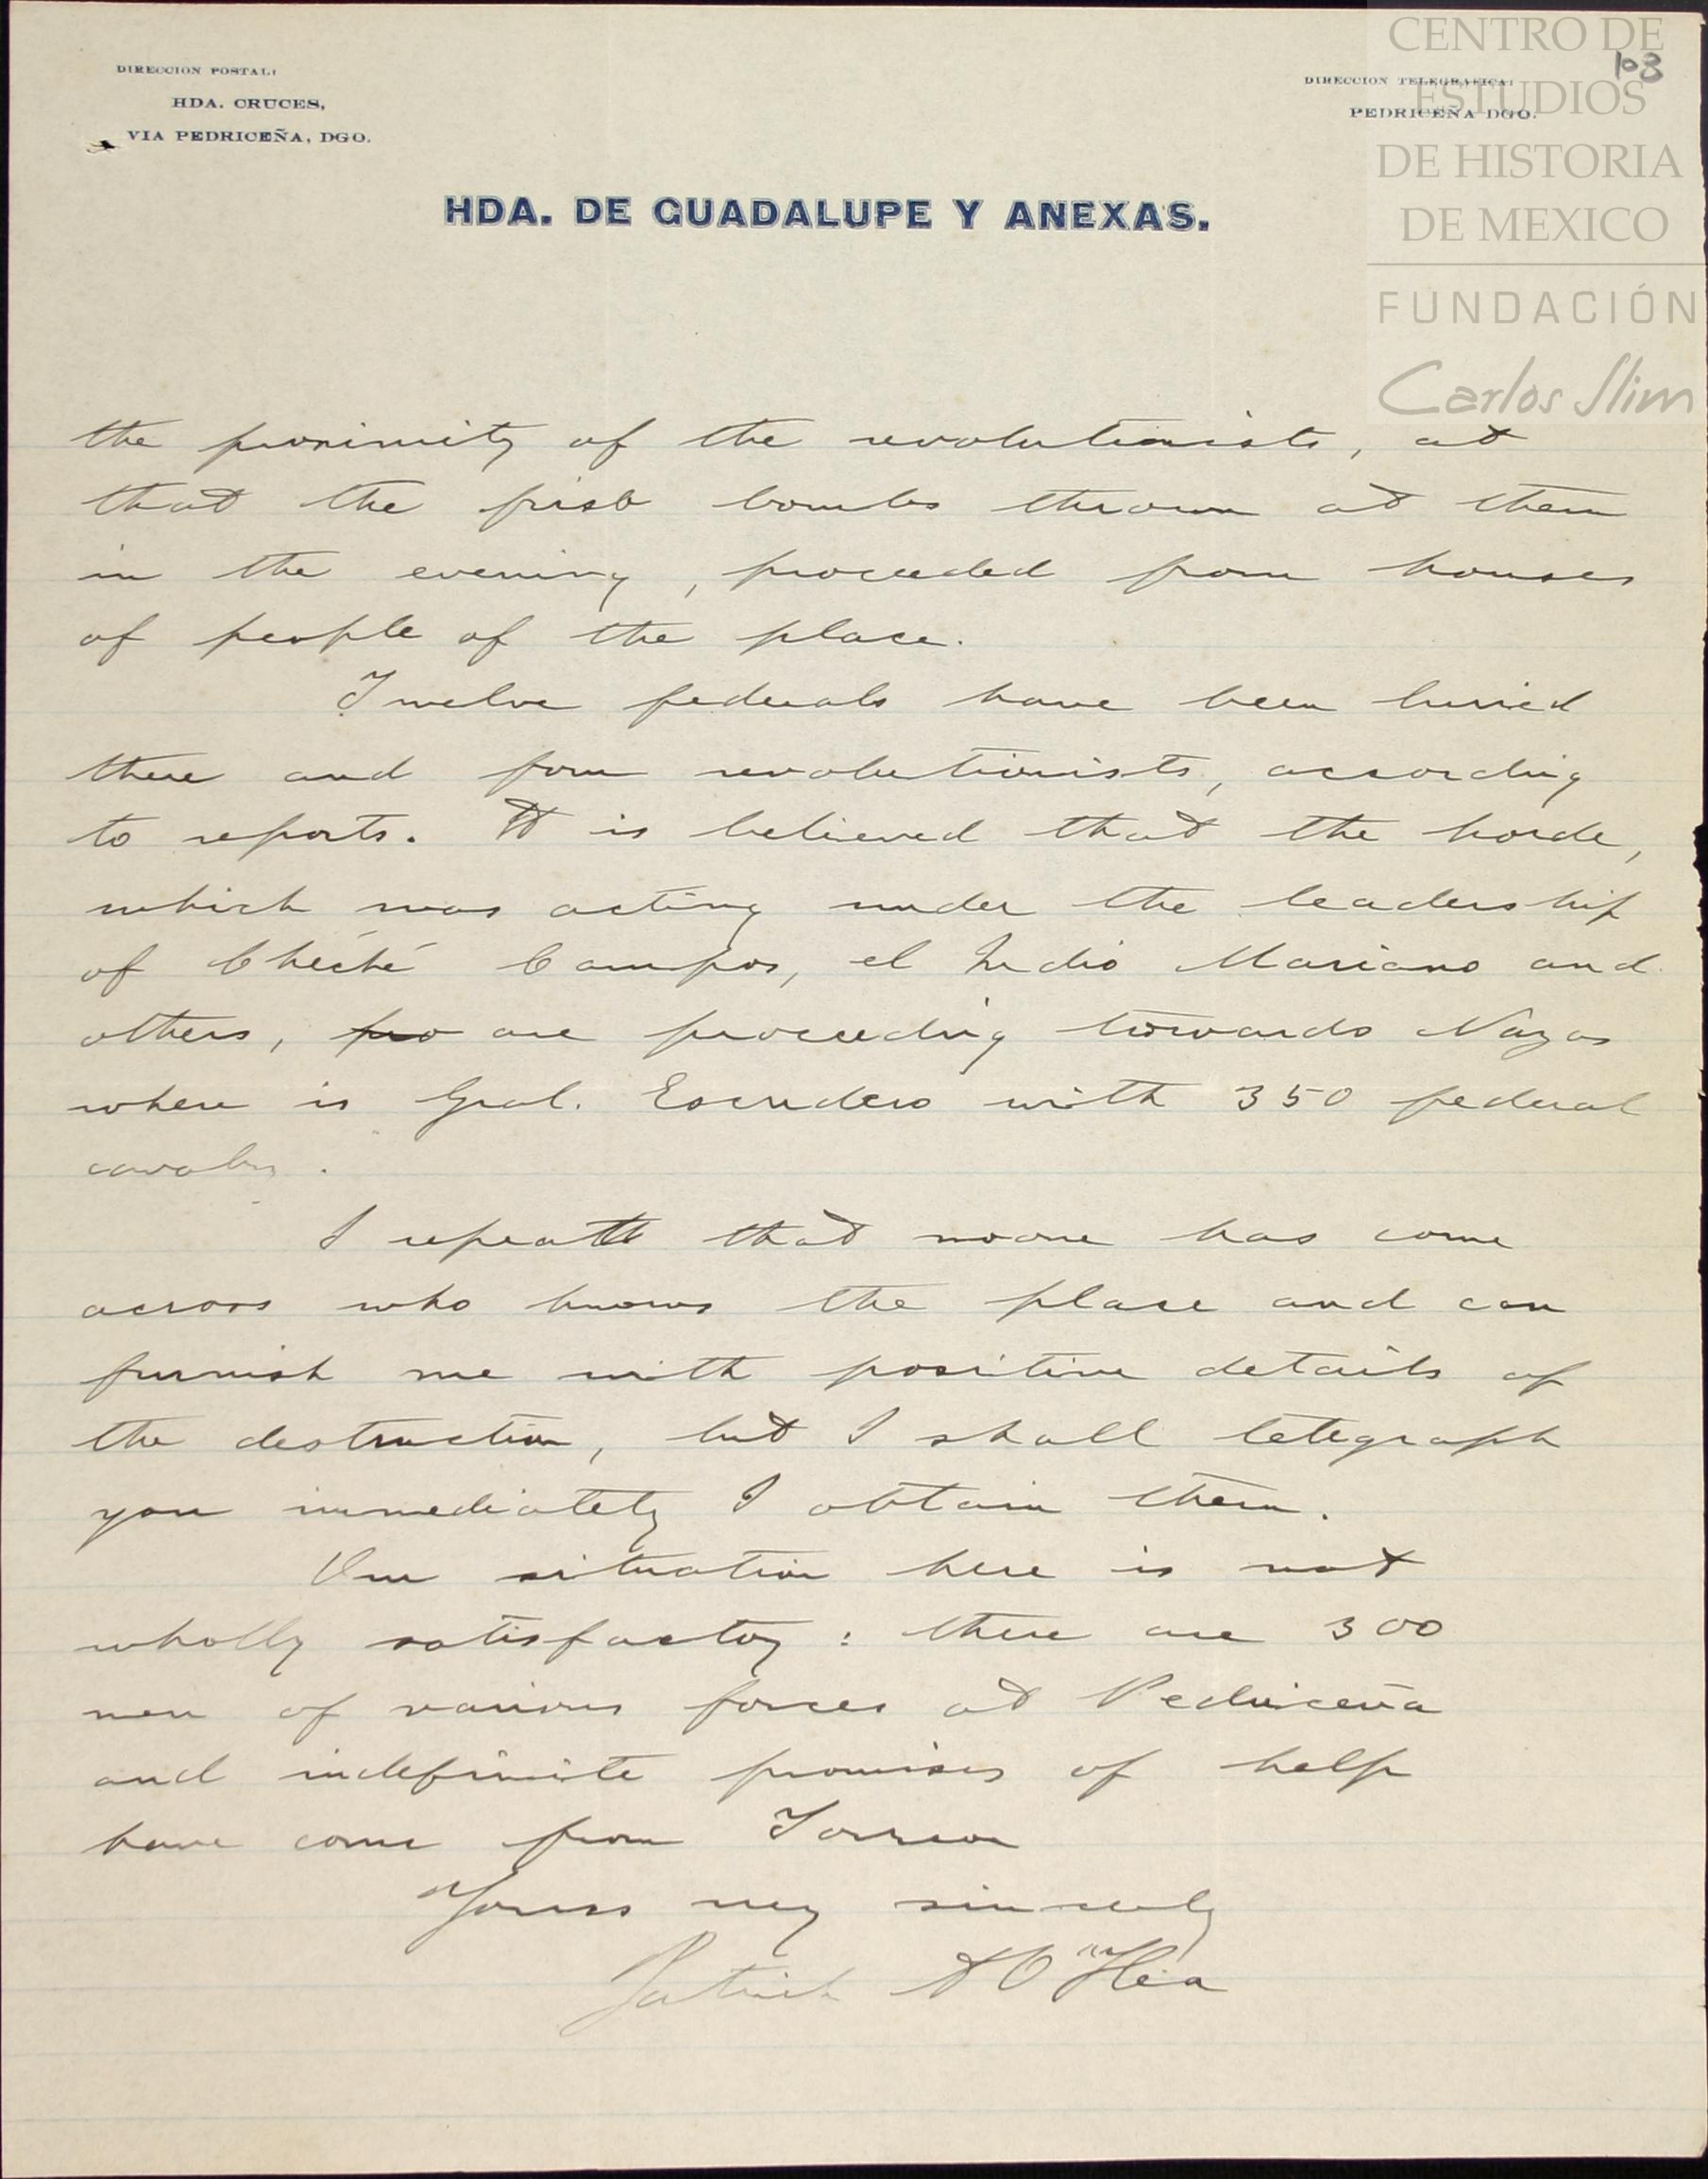 DIRECCION POSTAL:
HDA. CRUCES,
VIA PEDRICEÑA, DGO.
DIRECCION TELEGRAFICA:
PEDRICEÑA DGO.
108
CENTRO DE
ESTUDIOS
DE HISTORIA
DE MEXICO
FUNDACIÓN
Carlos Slim
HDA. DE GUADALUPE Y ANEXAS.
the proximity of the revolutionists, at
that the first bombs thrown at them
in the evening, proceeded from houses
of people of the place.
Twelve federals have been buried
there and four revolutionists, according
to reports. It is believed that the horde,
which was acting under the leadership
of Chéché Campos, el Indio Mariano and
others, pro are proceeding towards Nazas
where is Gral. Escudero with 350 federal
cavalry.
I repeat that noone has come
across who knows the place and can
furnish me with positive details of
the destruction, but I shall telegraph
you immediately I obtain them.
Our situation here is not
wholly satisfactory: there are 300
men of various forces at Pedriceña
and indefinite promises of help
have come from Torreon
Yours very sincerely
Patrick A O'Hea